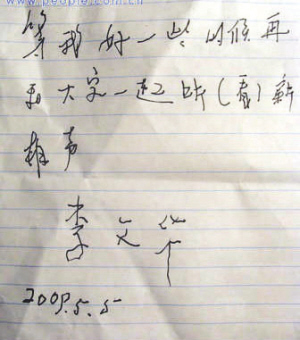 www.people.com.cn
等我好一些的候再
和大家一起听(看)新
相声
李文华
2009.5.5